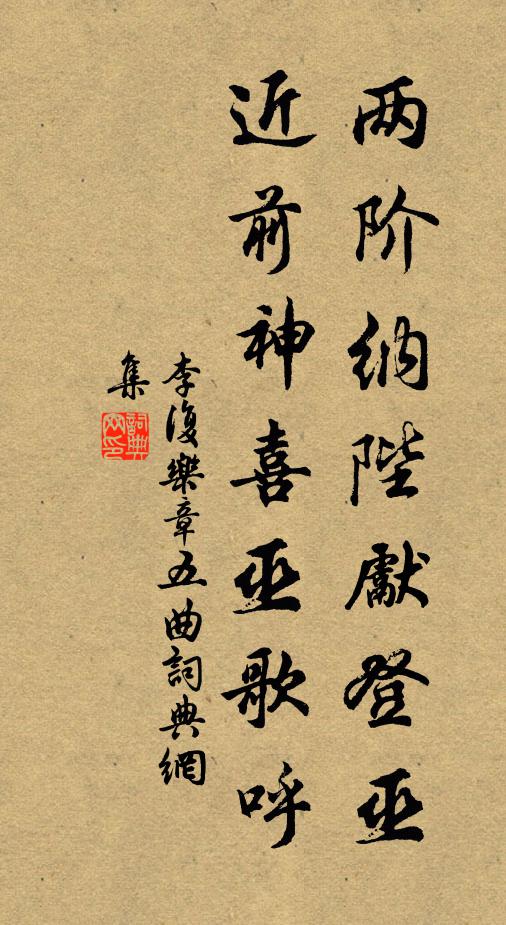 两阶纳陛献登巫
近前神喜巫歌呼
李復樂章五曲詞典網
集
詞典網印